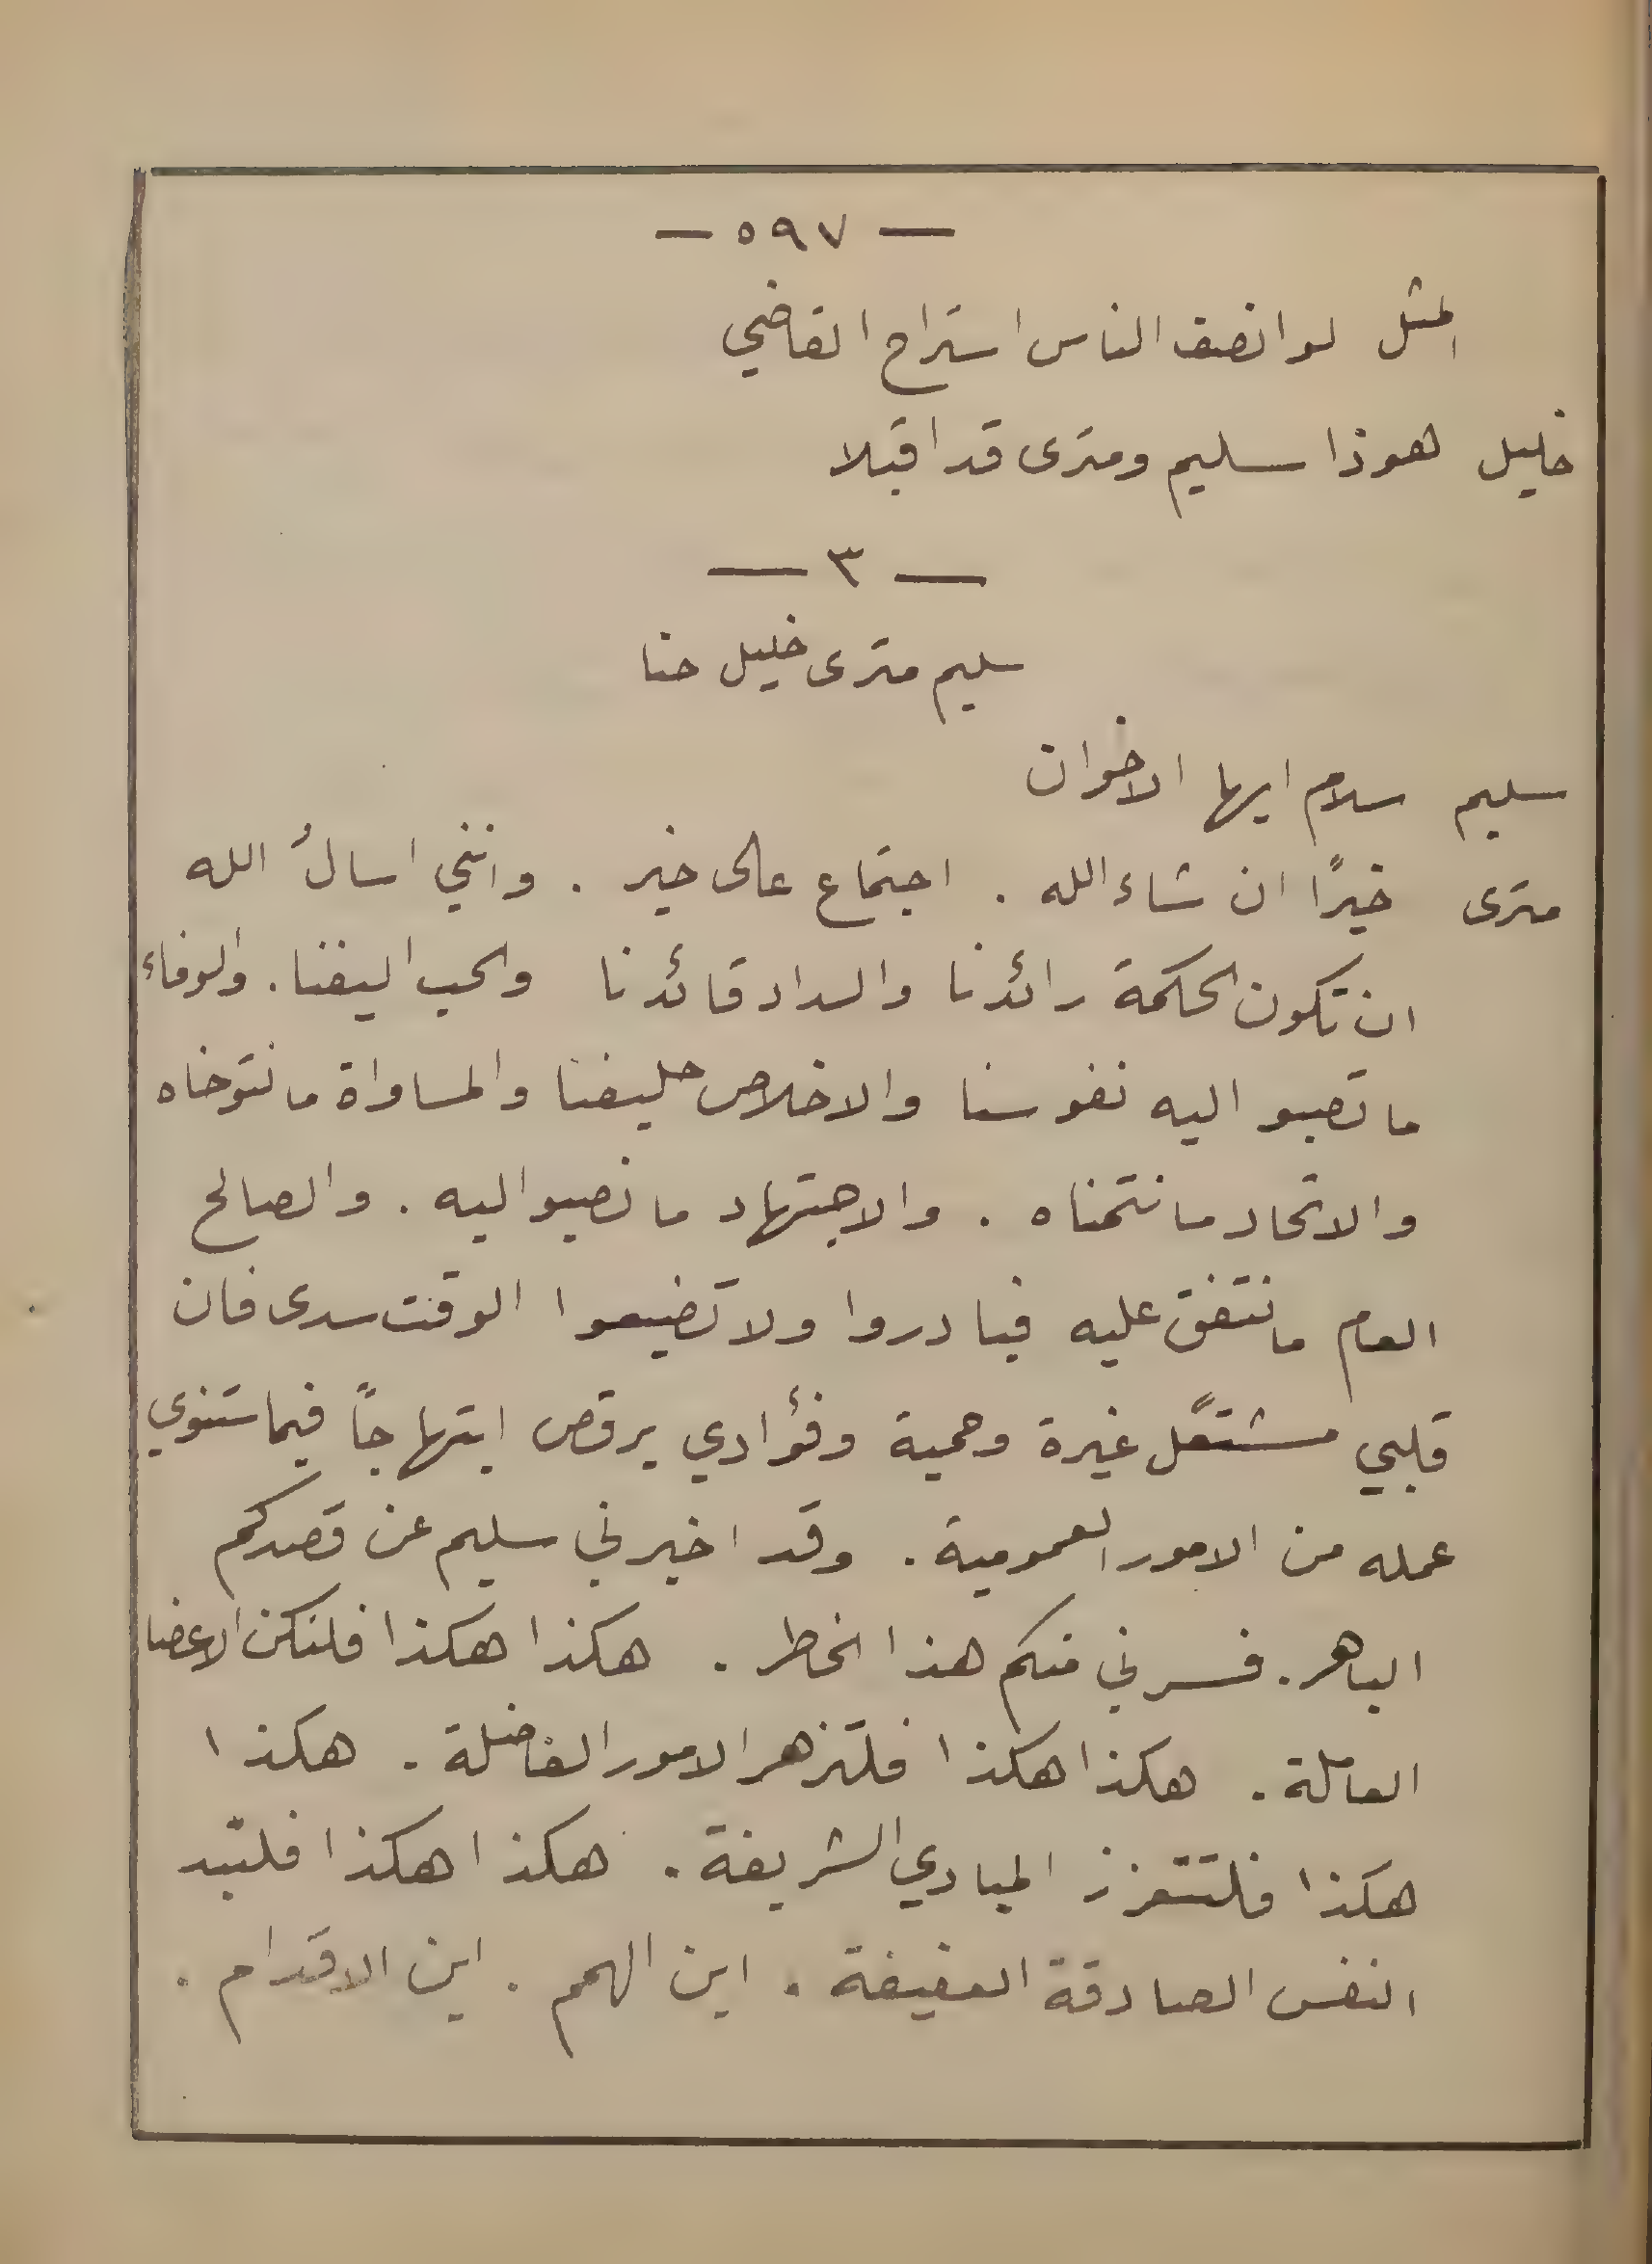 — ٥٩٧ —
المثل لو انصف الناس استراح القاضي
خليل هوذا سليم ومترى قد اقبلا
— ٣ —
سليم مترى خليل حنا
سليم سلام ايها الاخوان
مترى خيرًا ان شاء الله . اجتماع على خير . وانني اسالُ الله
ان تكون الحكمة رائدنا والسداد قائدنا والحب اليفنا . والوفاء
ما تصبو اليه نفوسنا والاخلاص حليفنا والمساواة ما نتوخاه
والاتحاد ما نتمناه . والاجتهاد ما نصبو اليه . والصالح
العام ما نتفق عليه فبادروا ولا تضيعوا الوقت سدى فان
قلبي مشتعل غيرة وحمية وفؤادي يرقص ابتهاجاً فيما ستنوي
عمله من الامور العمومية . وقد اخبرني سليم عن قصدكم
الباهر . فسرني منكم هذا الخاطر . هكذا هكذا فلتكن الاعضا
العاملة . هكذا هكذا فلتزهر الامور الفاضلة . هكذا
هكذا فلتتعزز المبادي الشريفة . هكذا هكذا فلتبد
النفس الصادقة العفيفة . اين الهمم . اين الاقدام .